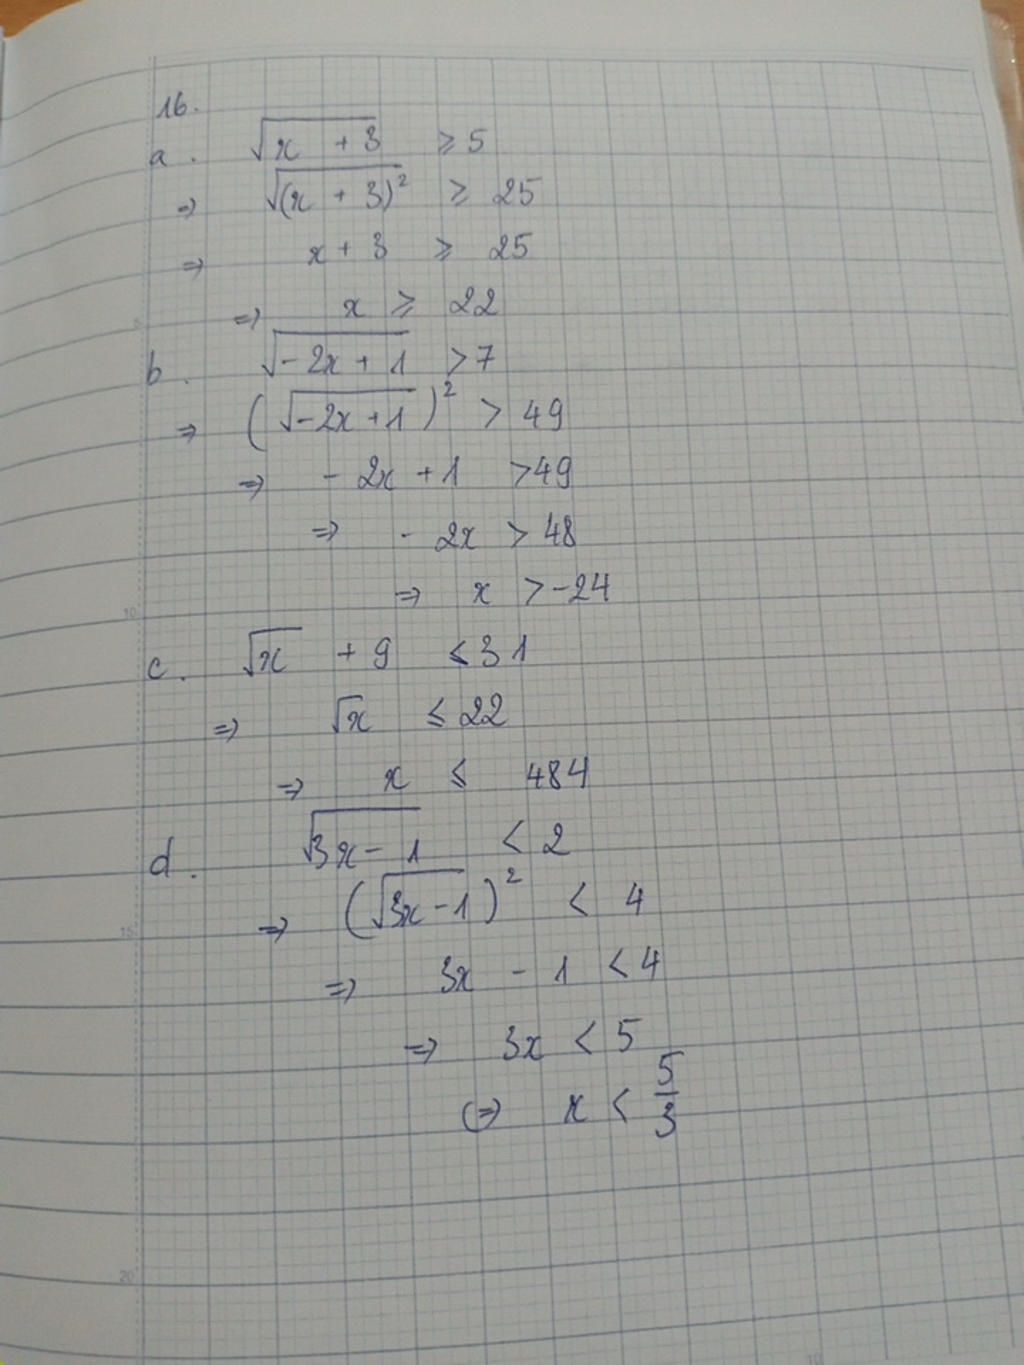 16.
a. √(x + 3) ⩾ 5
⇒ √(x + 3)² ⩾ 25
⇒ x + 3 ⩾ 25
⇒ x ⩾ 22
b. √(-2x + 1) > 7
⇒ (√(-2x + 1))² > 49
⇒ - 2x + 1 > 49
⇒ - 2x > 48
⇒ x > -24
c. √x + 9 ⩽ 31
⇒ √x ⩽ 22
⇒ x ⩽ 484
d. √(3x - 1) < 2
⇒ (√(3x - 1))² < 4
⇒ 3x - 1 < 4
⇒ 3x < 5
(⇒ x < 5/3
5
10
15
20
10